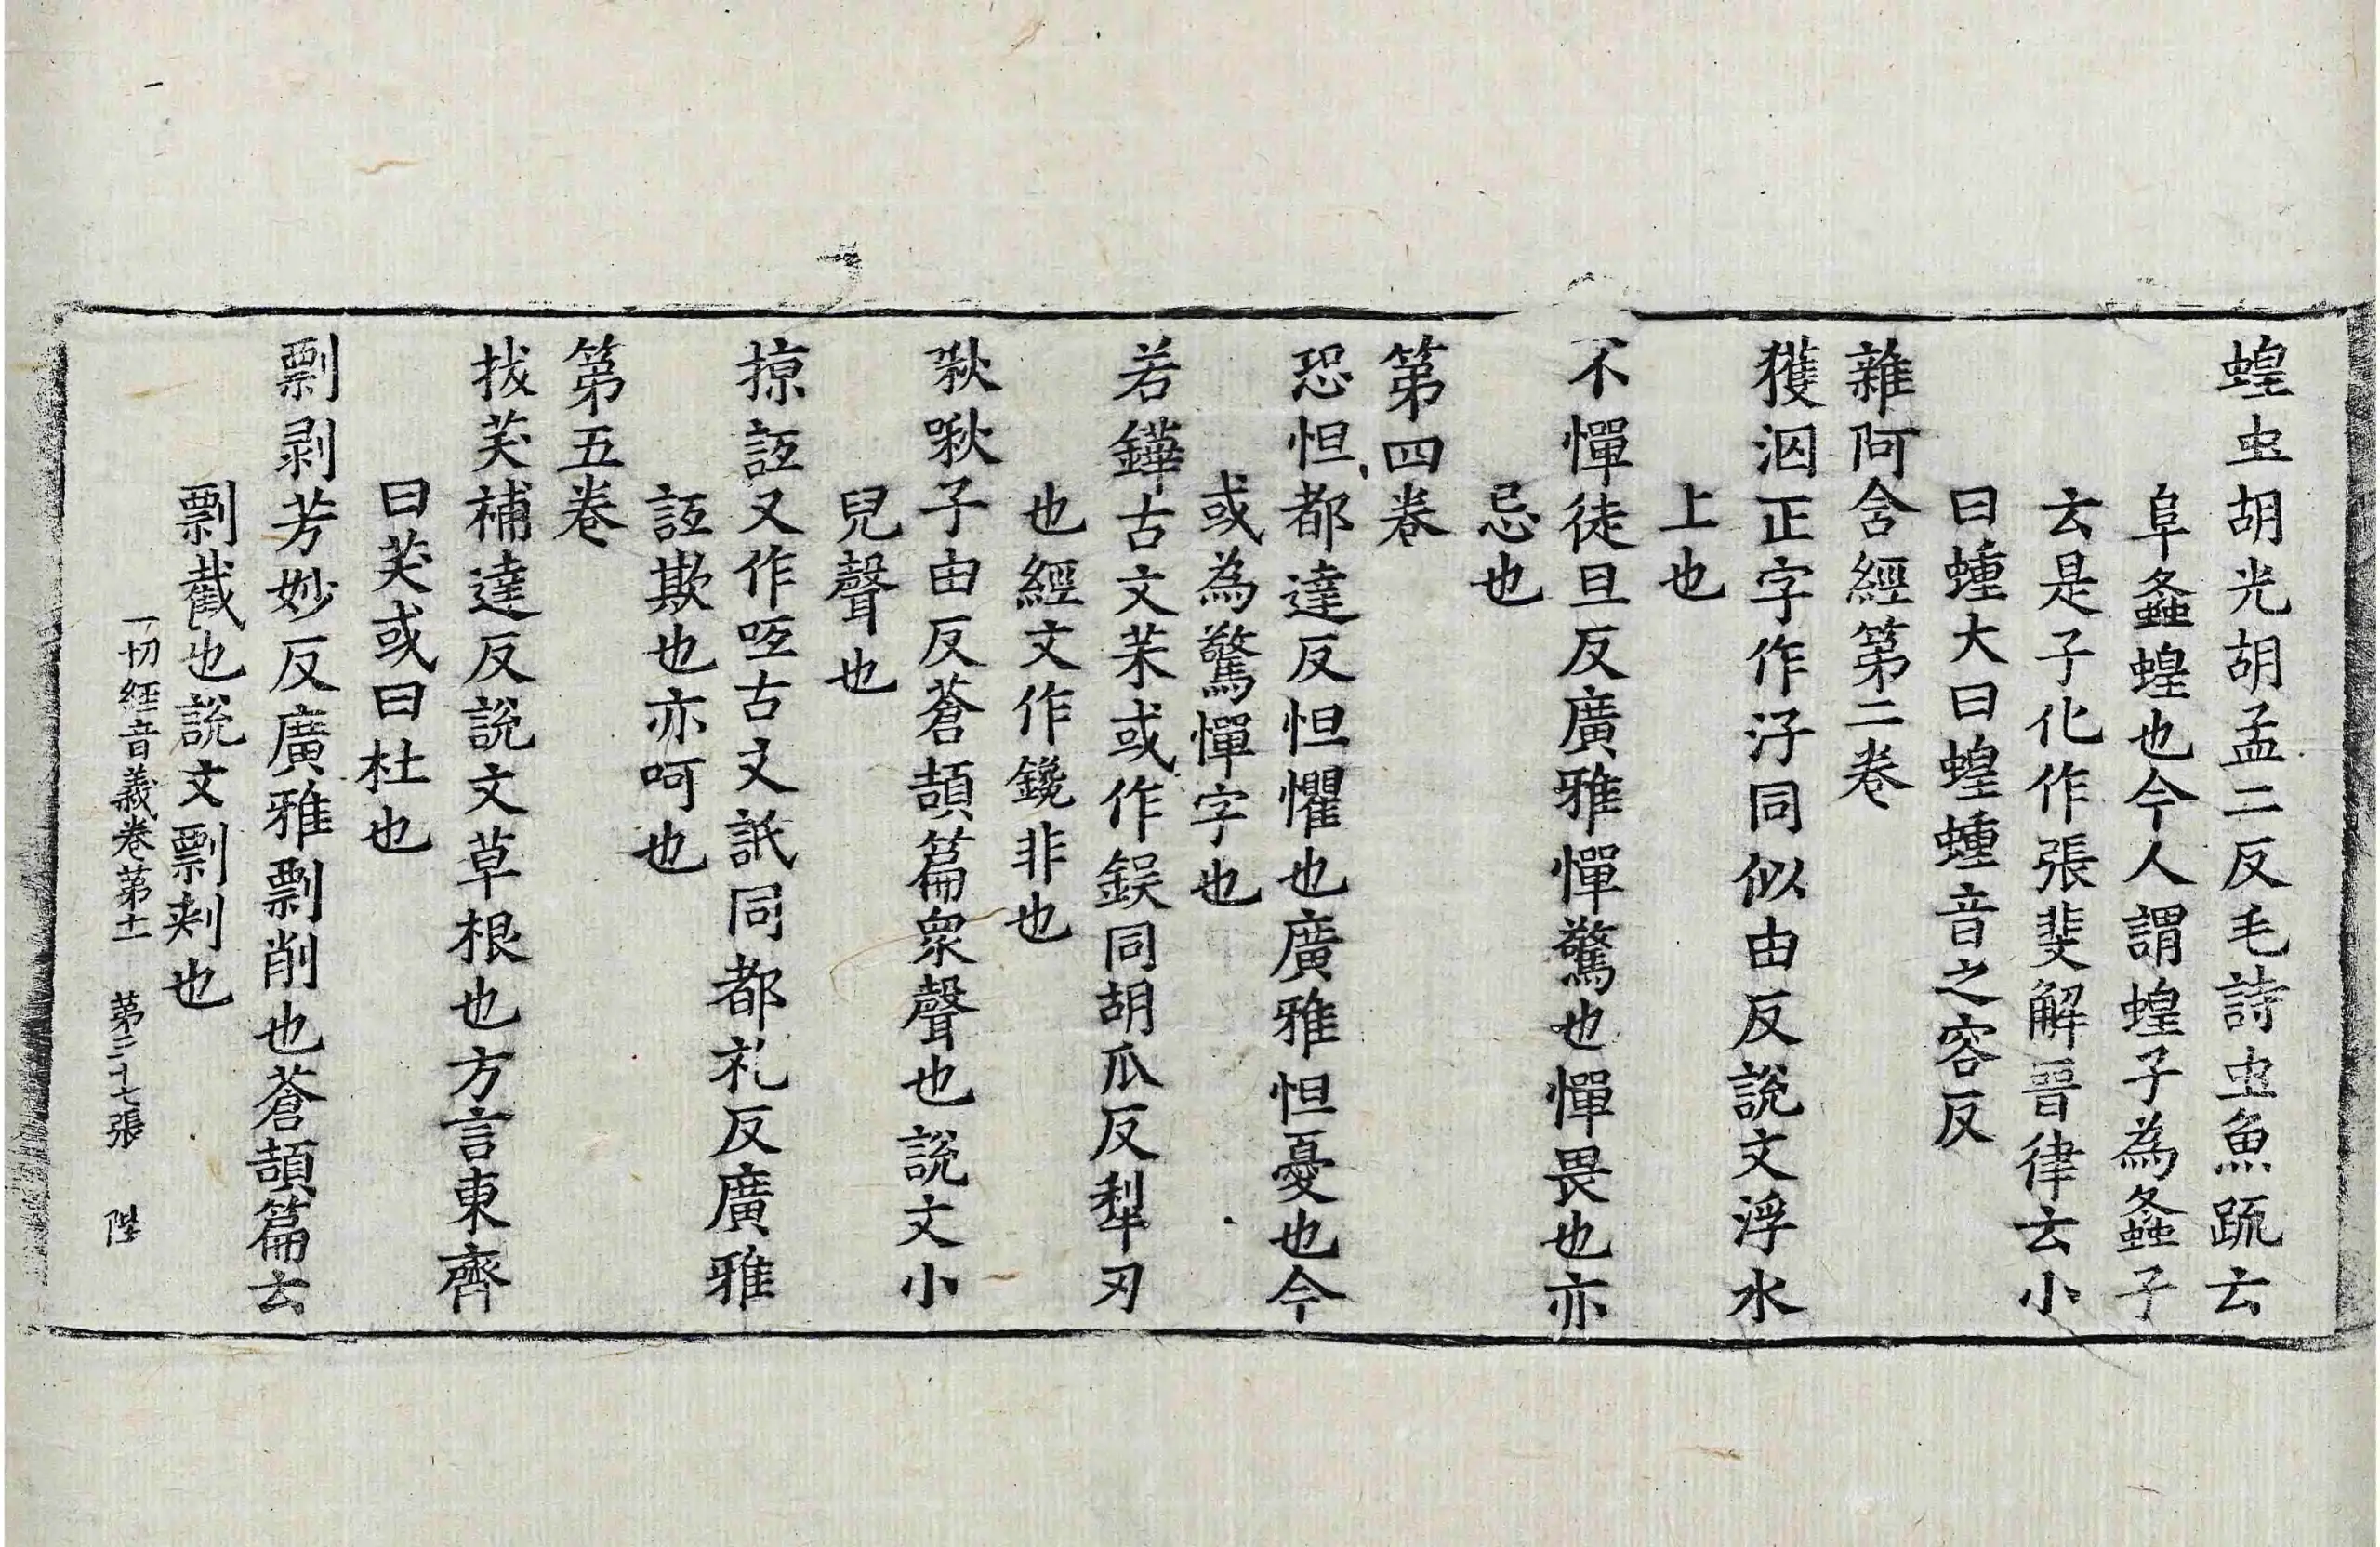 蝗虫胡光胡孟二反毛詩虫魚䟽云
阜螽蝗也今人謂蝗子為螽子
云是子化作張斐解晉律云小
曰蝩大曰蝗蝩音之容反
雜阿含經第二卷
獲泅正字作汓同似由反說文浮水
上也
不憚徒旦反廣雅憚驚也憚畏也亦
忌也
第四卷
恐怛都達反怛懼也廣雅怛憂也今
或為驚憚字也
若鏵古文茉或作鋘同胡瓜反犁刃
也經文作鑱非也
啾啾子由反蒼頡篇衆聲也說文小
兒聲也
掠詆又作呧古文䛡同都礼反廣雅
詆欺也亦呵也
第五卷
拔茇補達反說文草根也方言東齊
曰茇或曰杜也
剽剥芳妙反廣雅剽削也蒼頡篇云
剽截也說文剽刾也
一切經音義卷第十一 第二十七張 陛